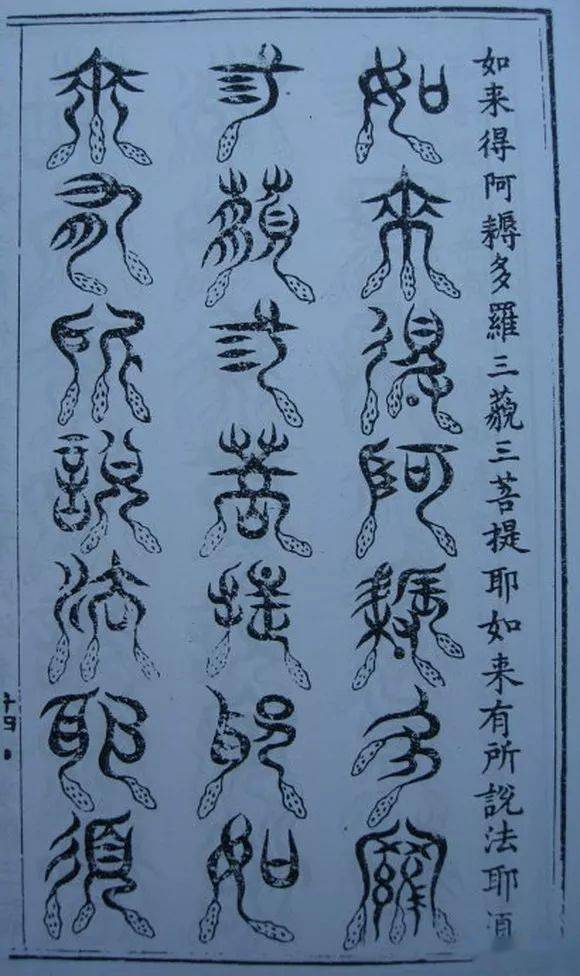 如来得阿耨多羅三藐三菩提耶如来有所說法耶須
如来得阿耨多羅
三藐三菩提耶如
来有所說法耶須